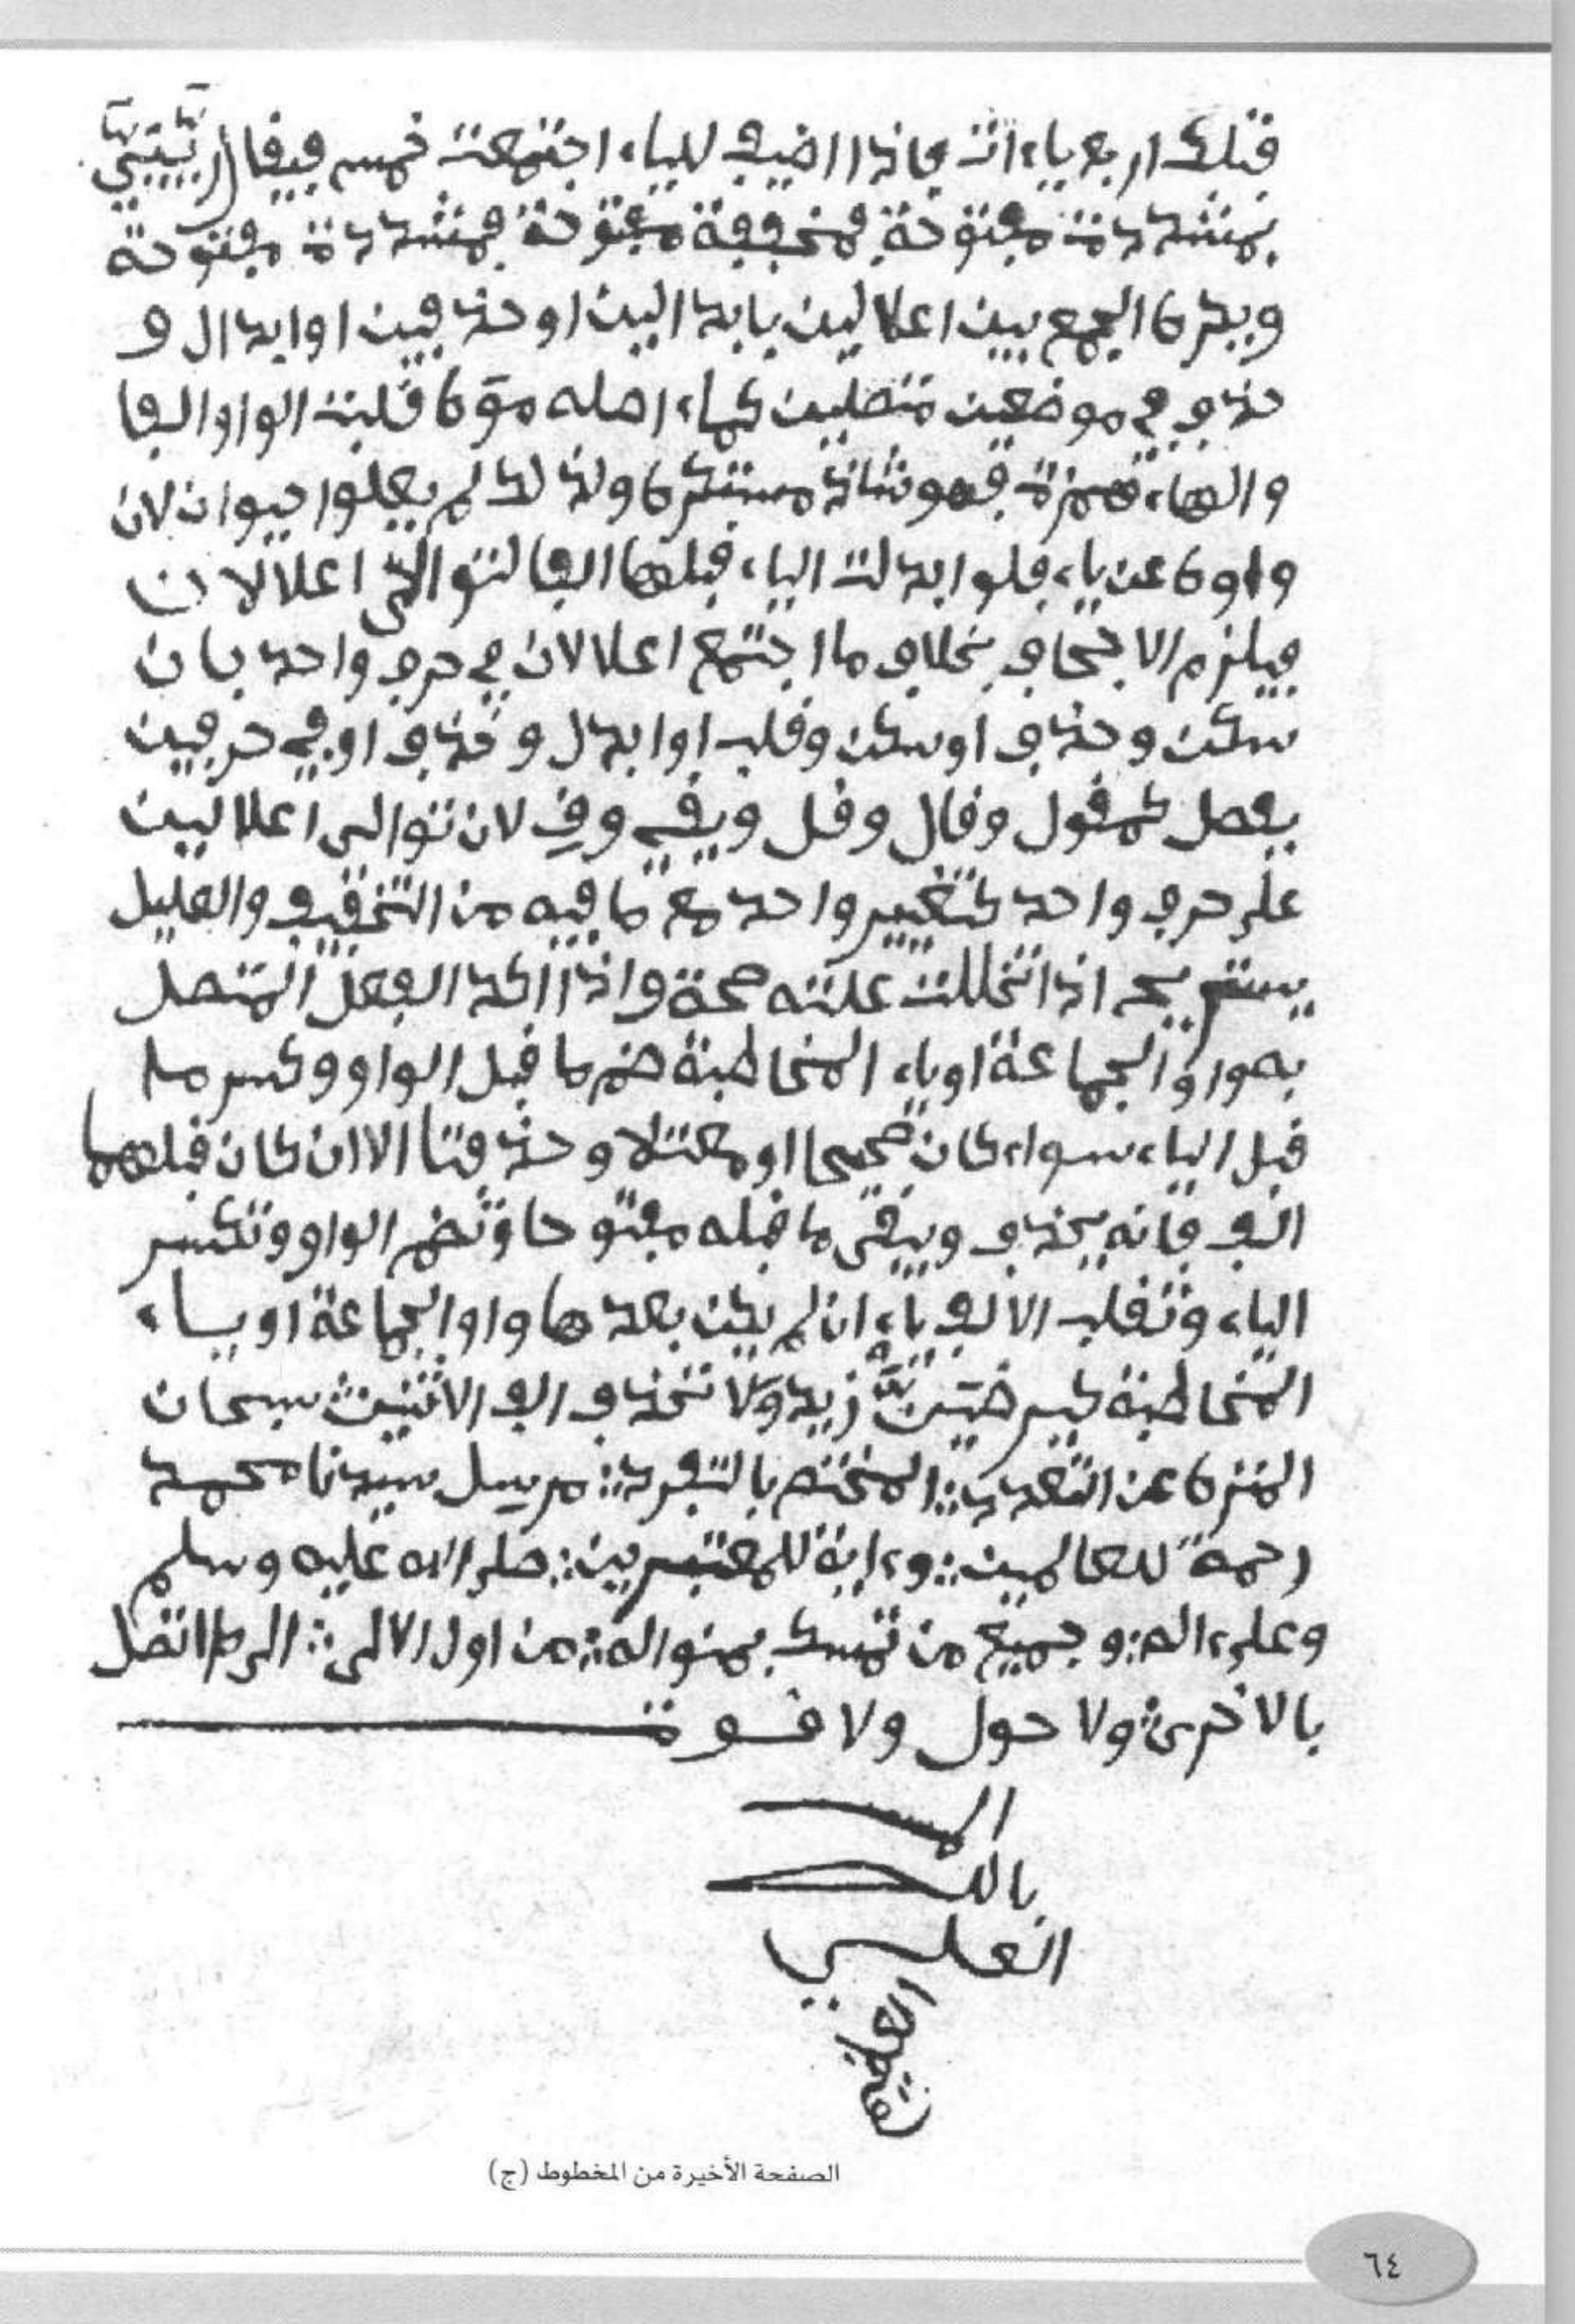 فتلك اربع ياءات فاذا اضيف للياء اجتمعت خمس فيقال
بمشددة مفتوحة فمخففة مفتوحة فمشددة مفتوحة
ويكره الجمع بين اعلالين بابدالين او حذفين او ابدال و
حذف في موضعين متصلين كماء اصله موه قلبت الواو الفا
والهاء همزة فهو شاذ مستكره ولذلك لم يعلوا حيوان لان
واوه عن ياء فلو ابدلت الياء قبلها الفا لتوالى اعلالان
فيلزم الاجحاف بخلاف ما اجتمع اعلالان في حرف واحد بان
سكن وحذف او سكن وقلب او ابدل وحذف او في حرفين
بفصل كمقول وقال وقل ويقي وق لان توالى اعلالين
على حرف واحد كتغيير واحد مع ما فيه من التخفيف والعليل
يستريح اذا تخللت علته صحة واذا اكد الفعل المتصل
به واو الجماعة او ياء المخاطبة ضم ما قبل الواو وكسر ما
قبل الياء سواء كان صحيحا او معتلا وحذفتا الا ان كان قبلهما
الف فانه يحذف ويبقى ما قبله مفتوحا وتضم الواو وتكسر
الياء وتقلب الالف ياء ان لم يكن بعدها واو الجماعة او ياء
المخاطبة كيرضين زيد ولا تحذف الف الاثنين سبحان
المنزه عن التعديد المختم بالتفرد مرسل سيدنا محمد
رحمة للعالمين وءاية للمعتبرين صلى الله عليه وسلم
وعلى ءاله وجميع من تمسك بمنواله من اول الالى الى ما اتصل
بالاخرى ولا حول ولا قوة
الا
بالله
العلي
العظيم
الصفحة الأخيرة من المخطوط (ج)
٦٤